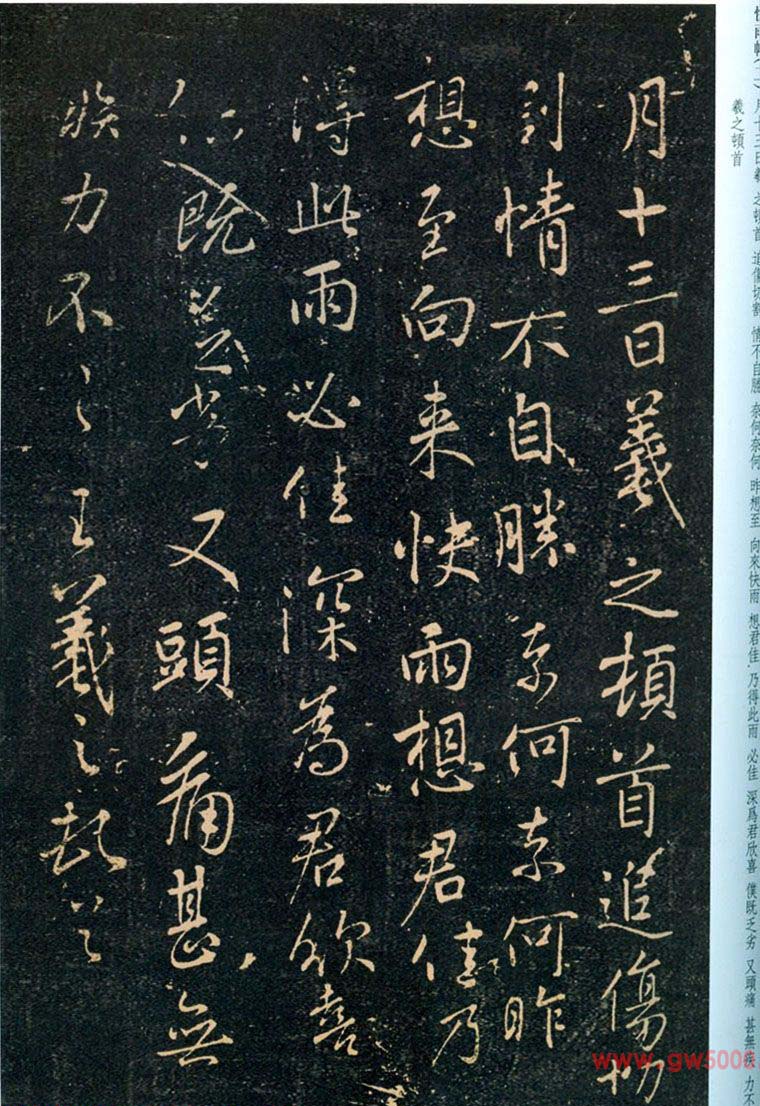 月十三日羲之頓首 追傷切割 情不自勝 奈何奈何 昨想至 向來快雨 想君佳 乃得此雨 必佳 深爲君欣喜 僕既乏劣 又頭痛 甚無疾 力不
羲之頓首
月十三日羲之頓首追傷切
割情不自勝奈何奈何昨
想至向來快雨想君佳乃
得此雨必佳深為君欣喜
僕既乏劣又頭痛甚無
疾力不〻王羲之
www.gw500